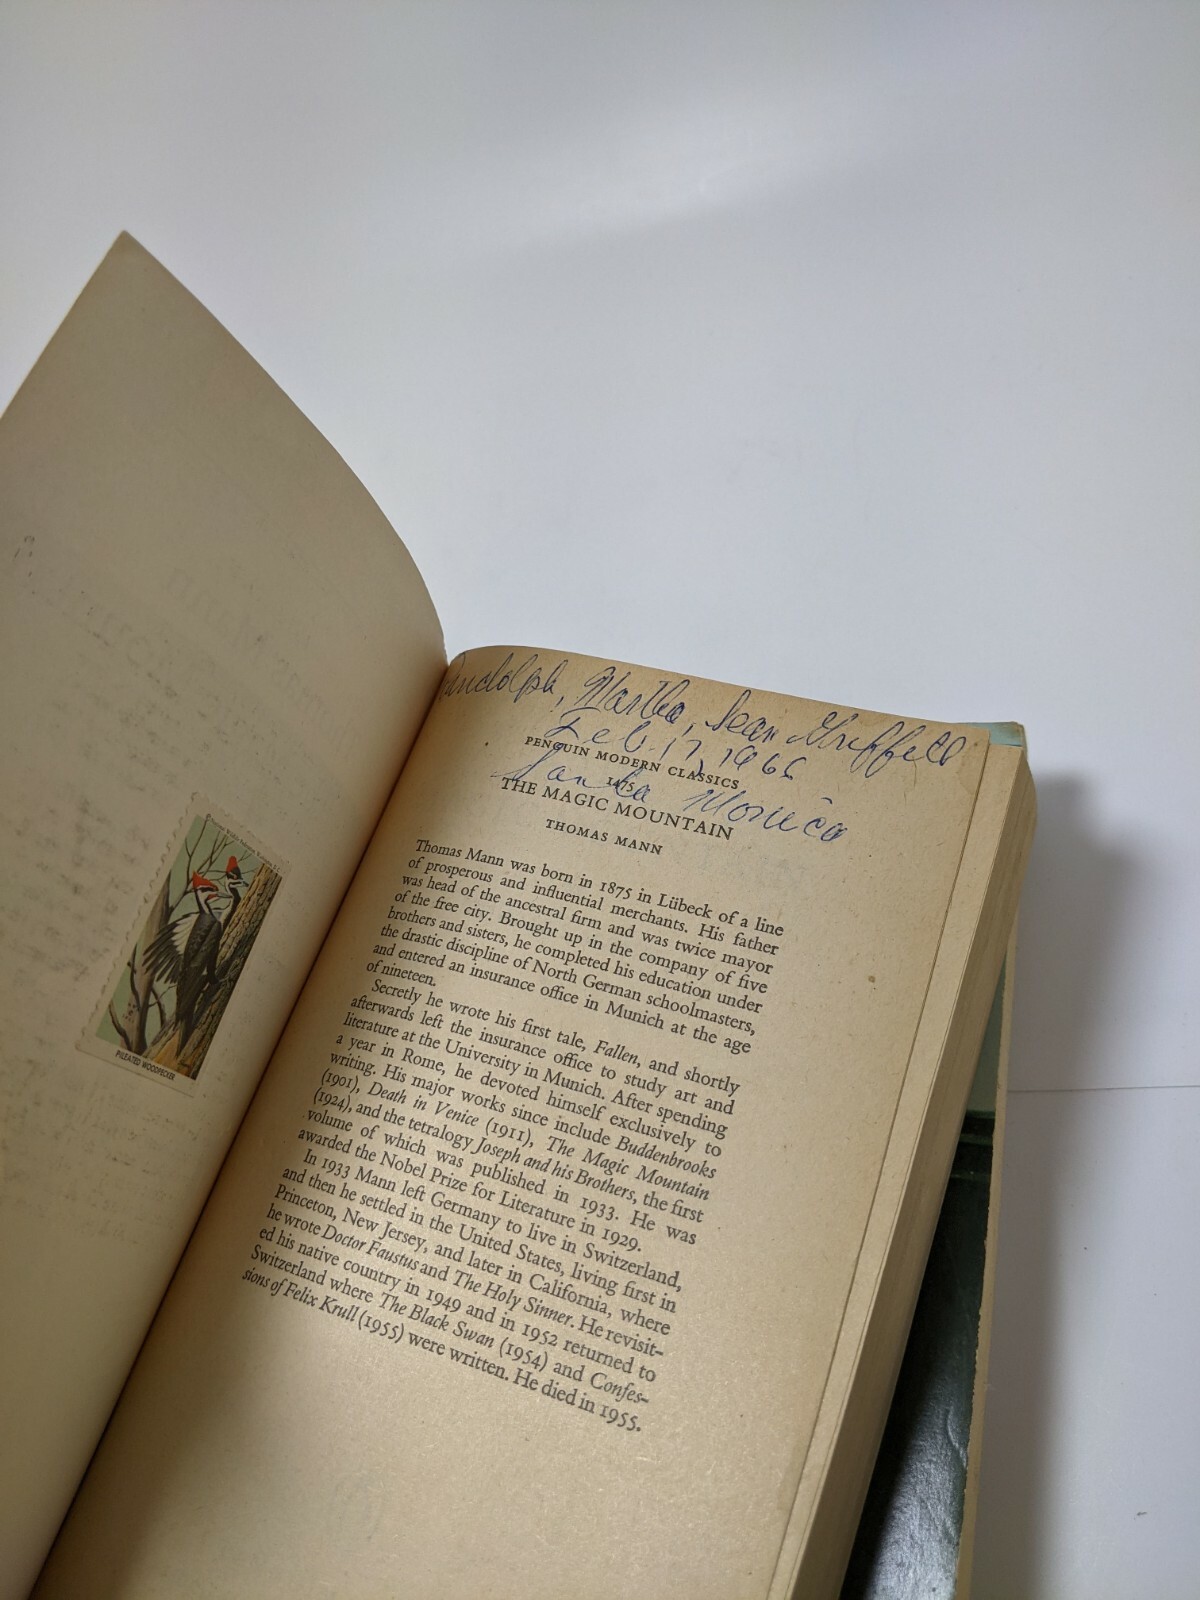 Randolph, Martha, Sean Griffell
Feb. 17, 1966
Santa Monica
PENGUIN MODERN CLASSICS
THE MAGIC MOUNTAIN
THOMAS MANN
Thomas Mann was born in 1875 in Lübeck of a line
of prosperous and influential merchants. His father
was head of the ancestral firm and was twice mayor
of the free city. Brought up in the company of five
brothers and sisters, he completed his education under
the drastic discipline of North German schoolmasters,
and entered an insurance office in Munich at the age
of nineteen.
Secretly he wrote his first tale, Fallen, and shortly
afterwards left the insurance office to study art and
literature at the University in Munich. After spending
a year in Rome, he devoted himself exclusively to
writing. His major works since include Buddenbrooks
(1901), Death in Venice (1911), The Magic Mountain
(1924), and the tetralogy Joseph and his Brothers, the first
volume of which was published in 1933. He was
awarded the Nobel Prize for Literature in 1929.
In 1933 Mann left Germany to live in Switzerland,
and then he settled in the United States, living first in
Princeton, New Jersey, and later in California, where
he wrote Doctor Faustus and The Holy Sinner. He revisit-
ed his native country in 1949 and in 1952 returned to
Switzerland where The Black Swan (1954) and Confes-
sions of Felix Krull (1955) were written. He died in 1955.
PILEATED WOODPECKER